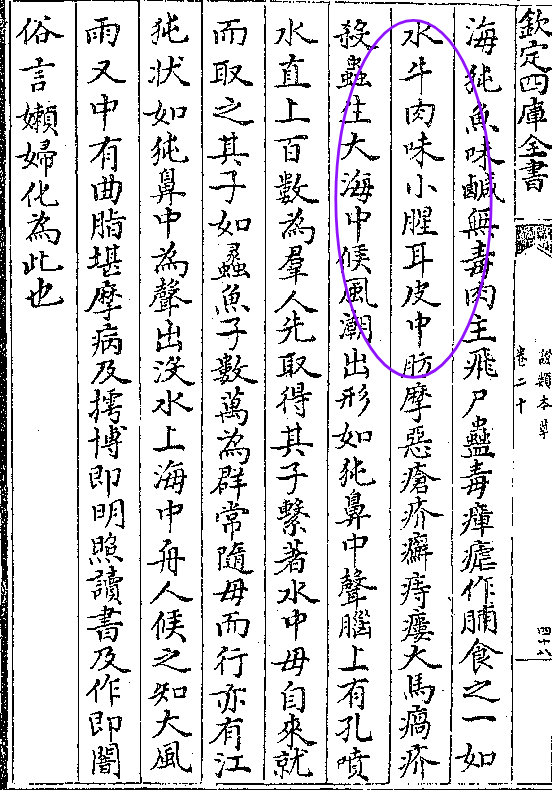 欽定四庫全書
證類本草
卷二十
四十八
海㹠魚味鹹無毒肉主飛尸蠱毒瘴瘧作脯食之一如
水牛肉味小腥耳皮中肪摩惡瘡疥癬痔瘻犬馬瘑疥
殺蟲生大海中候風潮出形如㹠鼻中聲腦上有孔噴
水直上百數為羣人先取得其子繫著水中母自來就
而取之其子如蠡魚子數萬為群常隨母而行亦有江
㹠狀如㹠鼻中為聲出沒水上海中舟人候之知大風
雨又中有曲脂堪摩病及摴博即明照讀書及作即闇
俗言嬾婦化為此也